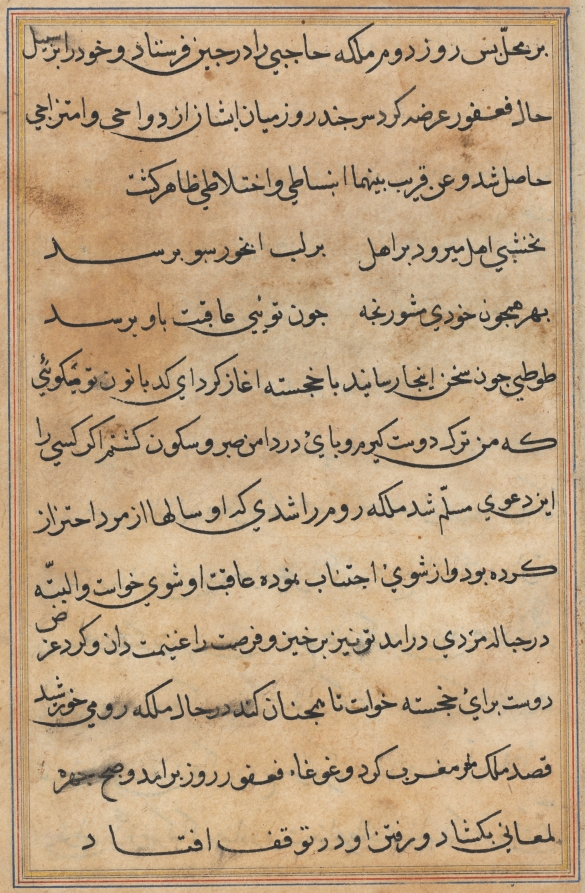 بر محلّ بس روز دوم ملکه حاجبي را در جین فرستاد و خود را بر سبیل
حال فغفور عرضه کرد بس جند روز میان ایشان ازدواجی و امتزاجی
حاصل شد و عن قریب بینهما انبساطی و اختلاطی ظاهر کشت
نخشبي اهل میرود بر اهل برلب ابخور سبو برسد
بهر همجون خودي مشو رنجه جون توئي عاقبت باو برسد
طوطي جون سخن اینجا رسانید با خجسته اغاز کرد ای کدبانو تو میکوئي
که من ترک دوست کیرم و پای در دامن صبر و سکون کشم اکر کسی را
این دعوي مسلّم شد ملکه روم را شدي که او سالها از مرد احتراز
کرده بود و از شوي اجتناب نموده عاقبت او شوي خواست و البتّه
در حباله مردي درامد تو نیز برخیز و فرصت را غنیمت دان و کرد عرض
دوست برای خجسته خواست تا همجنان کند در حال ملکه رومي خورشید
قصد ملک مغرب کرد و غوغاء فغفور روز برامد و صبح جهره
لمعاني بکشاد و رفتن او در توقف افتاد